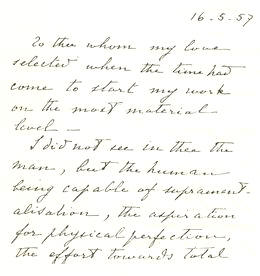 16-5-57
To thee whom my love
selected when the time had
come to start my work
on the most material
level —
I did not see in thee the
man, but the human
being capable of suprament-
alisation, the aspiration
for physical perfection,
the effort towards total